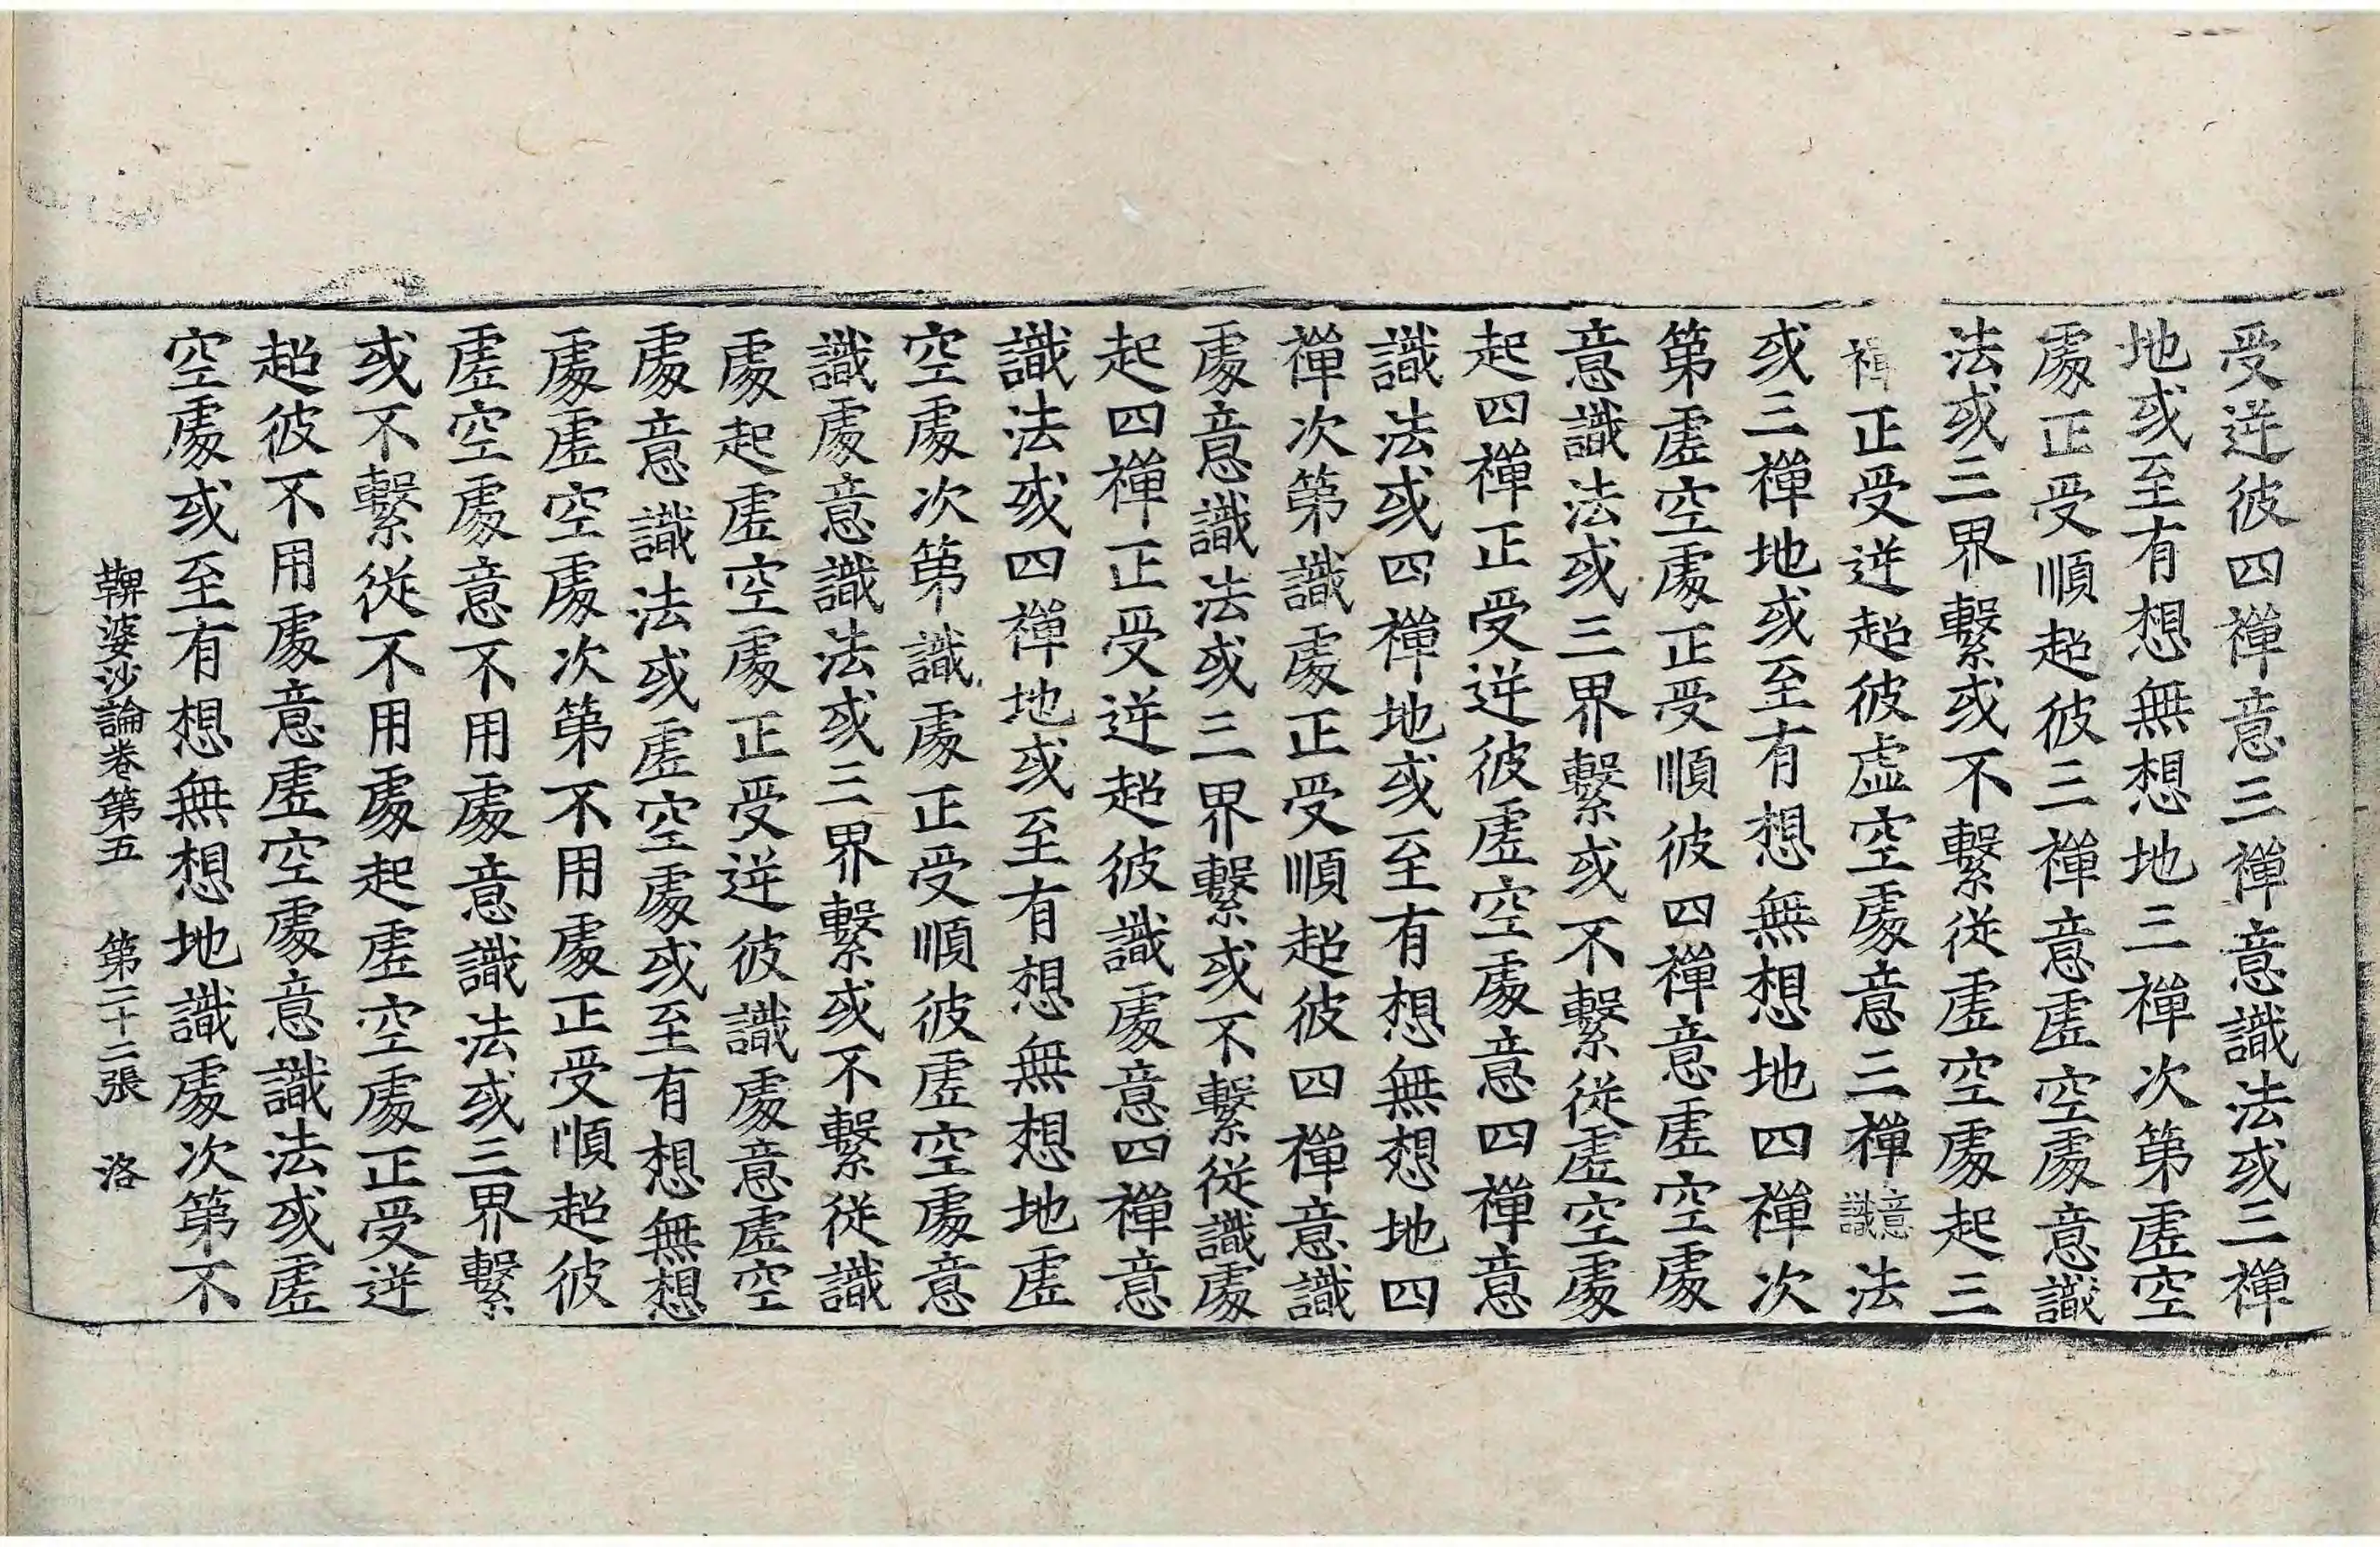 受逆彼四禪意三禪意識法或三禪
地或至有想無想地三禪次第虛空
處正受順超彼三禪意虛空處意識
法或三界繫或不繫從虛空處起三
禪正受逆超彼虛空處意三禪意識法
或三禪地或至有想無想地四禪次
第虛空處正受順彼四禪意虛空處
意識法或三界繫或不繫從虛空處
起四禪正受逆彼虛空處意四禪意
識法或四禪地或至有想無想地四
禪次第識處正受順超彼四禪意識
處意識法或三界繫或不繫從識處
起四禪正受逆超彼識處意四禪意
識法或四禪地或至有想無想地虛
空處次第識處正受順彼虛空處意
識處意識法或三界繫或不繫從識
處起虛空處正受逆彼識處意虛空
處意識法或虛空處或至有想無想
處虛空處次第不用處正受順超彼
虛空處意不用處意識法或三界繫
或不繫從不用處起虛空處正受逆
超彼不用處意虛空處意識法或虛
空處或至有想無想地識處次第不
鞞婆沙論卷第五 第二十二張 洛